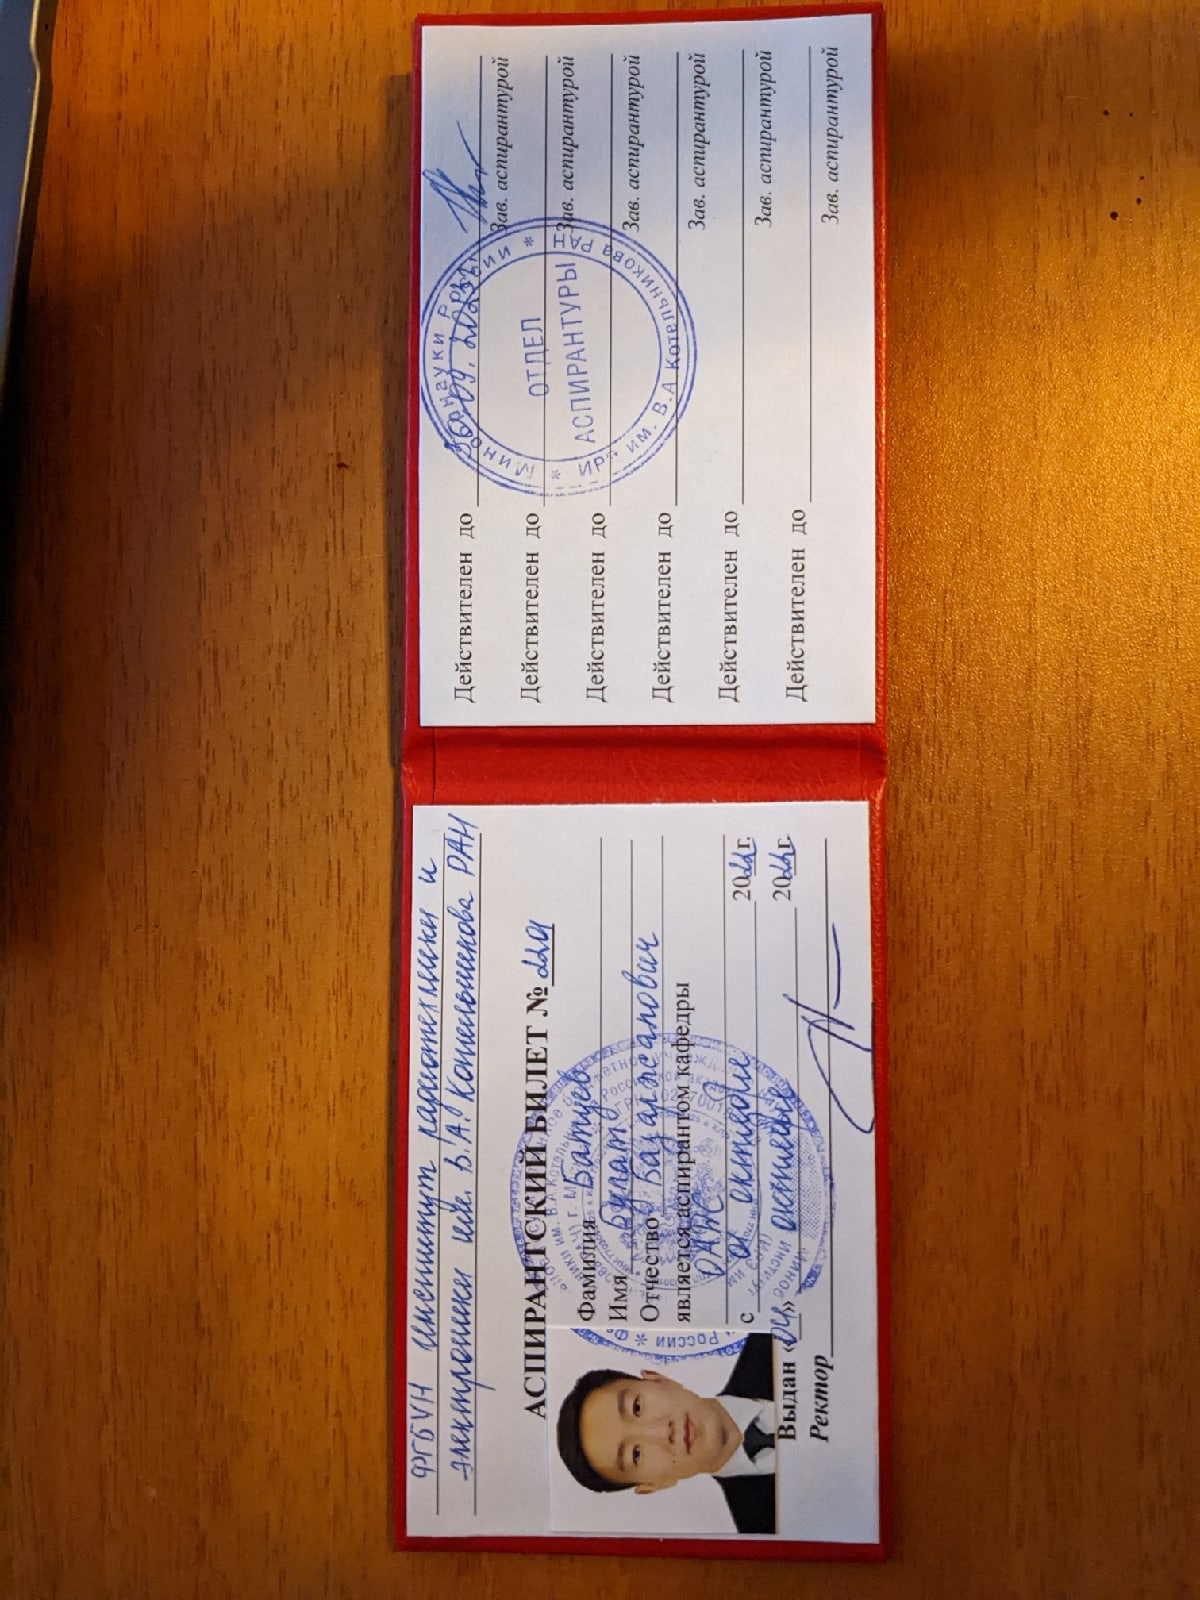 ФГБУН институт радиотехники и
электроники им. В.А. Котельникова РАН
АСПИРАНТСКИЙ БИЛЕТ № 229
Фамилия Батуев
Имя Булат
Отчество Базаржапович
является аспирантом кафедры
с 01 октября 2022 г.
Выдан «04» октября 2022 г.
Ректор
Действителен до 30.09.2023
Зав. аспирантурой
Действителен до
Зав. аспирантурой
Действителен до
Зав. аспирантурой
Действителен до
Зав. аспирантурой
Действителен до
Зав. аспирантурой
Действителен до
Зав. аспирантурой
ОТДЕЛ
АСПИРАНТУРЫ
им. В.А Котельникова РАН